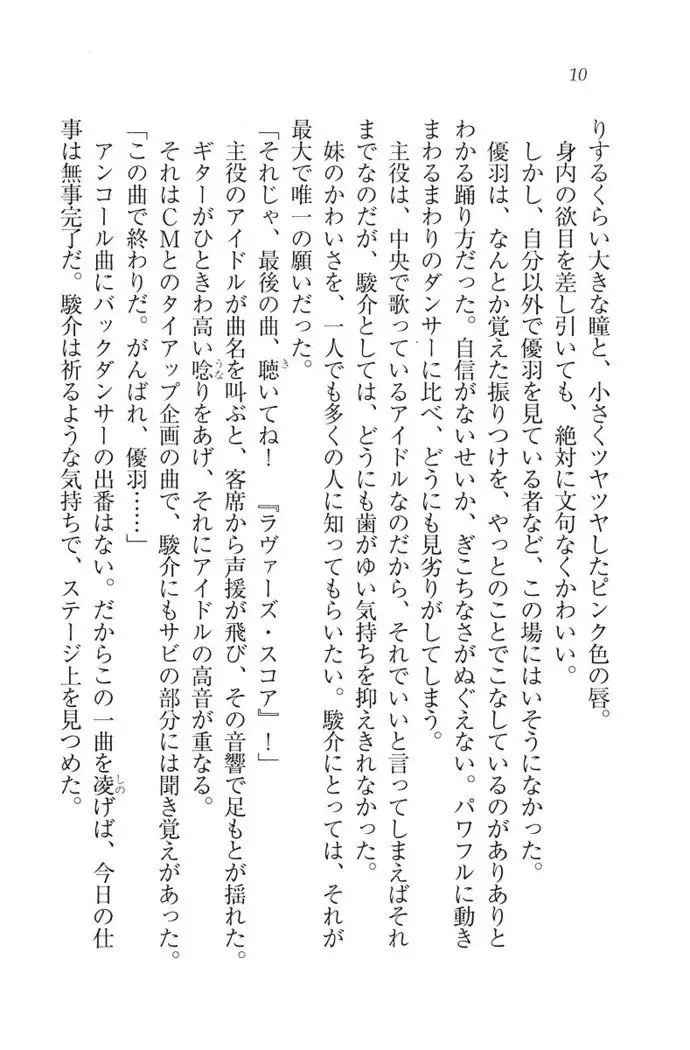 10
りするくらい大きな瞳と、小さくツヤツヤしたピンク色の唇。
身内の欲目を差し引いても、絶対に文句なくかわいい。
しかし、自分以外で優羽を見ている者など、この場にはいそうになかった。
優羽は、なんとか覚えた振りつけを、やっとのことでこなしているのがありありと
わかる踊り方だった。自信がないせいか、ぎこちなさがぬぐえない。パワフルに動き
まわるまわりのダンサーに比べ、どうにも見劣りがしてしまう。
主役は、中央で歌っているアイドルなのだから、それでいいと言ってしまえばそれ
までなのだが、駿介としては、どうにも歯がゆい気持ちを抑えきれなかった。
妹のかわいさを、一人でも多くの人に知ってもらいたい。駿介にとっては、それが
最大で唯一の願いだった。
「それじゃ、最後の曲、聴いてね！　『ラヴァーズ・スコア』！」
主役のアイドルが曲名を叫ぶと、客席から声援が飛び、その音響で足もとが揺れた。
ギターがひときわ高い唸りをあげ、それにアイドルの高音が重なる。
それはＣＭとのタイアップ企画の曲で、駿介にもサビの部分には聞き覚えがあった。
「この曲で終わりだ。がんばれ、優羽……」
アンコール曲にバックダンサーの出番はない。だからこの一曲を凌げば、今日の仕
事は無事完了だ。駿介は祈るような気持ちで、ステージ上を見つめた。